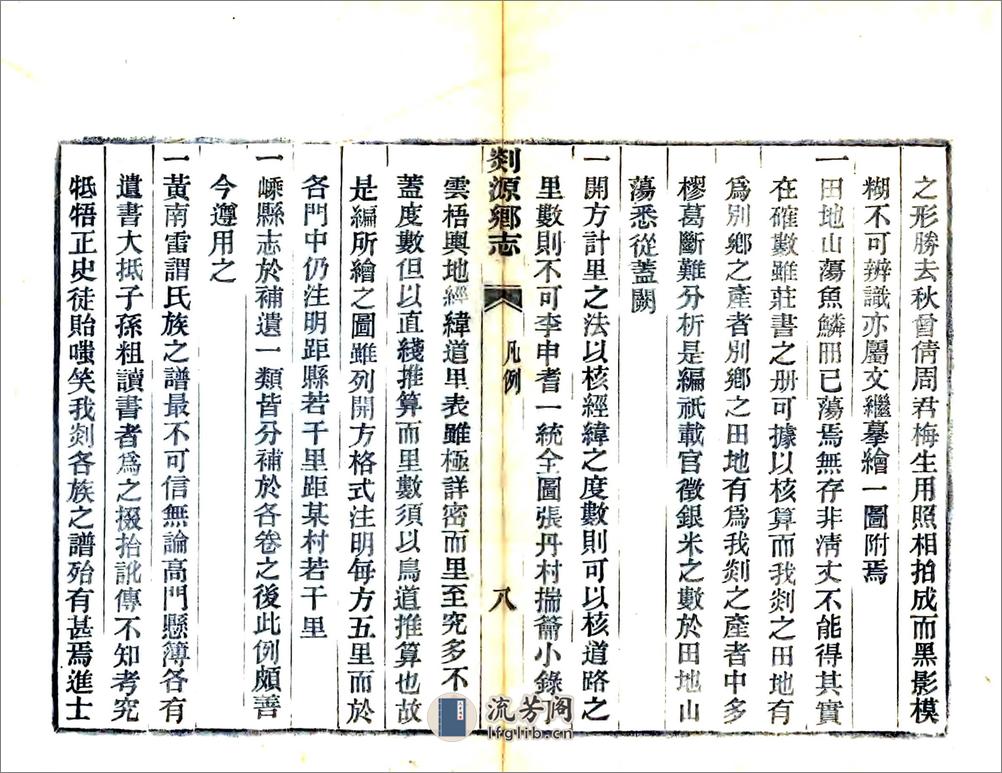 之形勝去秋曾倩周君梅生用照相拍成而黑影模
糊不可辨識亦屬文繼摹繪一圖附焉
一田地山蕩魚鱗冊已蕩焉無存非清丈不能得其實
在確數雖莊書之册可據以核算而我剡之田地有
為別鄉之產者別鄉之田地有為我剡之產者中多
樛葛斷難分析是編祇載官徵銀米之數於田地山
蕩悉從蓋闕
一開方計里之法以核經緯之度數則可以核道路之
里數則不可李申耆一統全圖張丹村揣籥小錄
雲梧輿地經緯道里表雖極詳密而里至究多不
剡源鄉志
凡例
八
蓋度數但以直綫推算而里數須以鳥道推算也故
是編所繪之圖雖列開方格式注明每方五里而於
各門中仍注明距縣若干里距某村若干里
一嵊縣志於補遺一類皆分補於各卷之後此例頗善
今遵用之
一黃南雷謂氏族之譜最不可信無論高門懸簿各有
遺書大抵子孫粗讀書者為之掇拾訛傳不知考究
牴牾正史徒貽嗤笑我剡各族之譜殆有甚焉進士
流芳阁
lfglib.cn